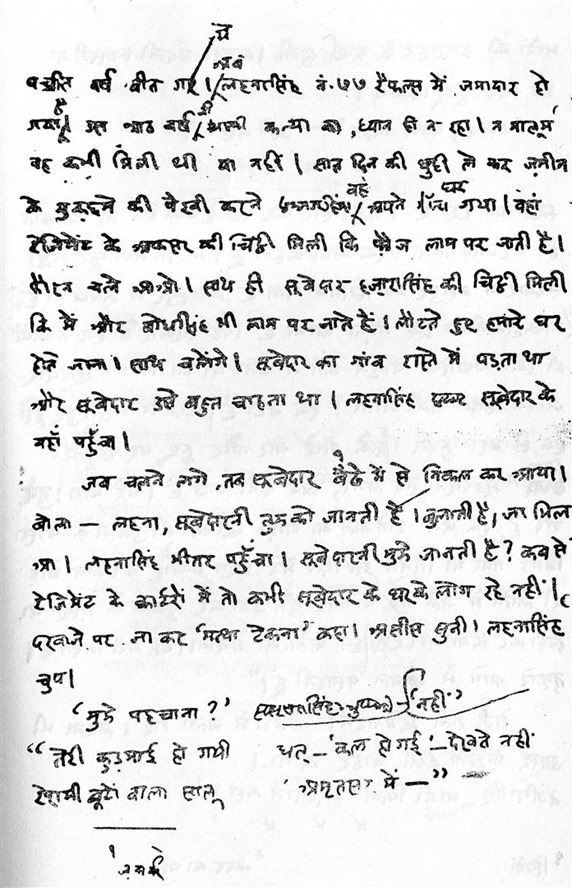 में
अब
पच्चीस वर्ष बीत गए। लहनासिंह नं. ७७ रैफल्स में जमादार हो
गया है। उस आठ वर्ष की कन्या का, ध्यान ही न रहा। न मालूम
वह कभी मिली थी या नहीं। सात दिन की छुट्टी ले कर ज़मीन
के मुकद्दमे की पैरवी करने वह अपने घर गया। वहां
रेजिमेंट के अफसर की चिट्ठी मिली कि फ़ौज लाम पर जाती है।
फौरन चले आओ। साथ ही सूबेदार हजारासिंह की चिट्ठी मिली
कि मैं और बोधासिंह भी लाम पर जाते हैं। लौटते हुए हमारे घर
होते जाना। साथ चलेंगे। सूबेदार का गांव रास्ते में पड़ता था
और सूबेदार उसे बहुत चाहता था। लहनासिंह सूबेदार के
यहाँ पहुँचा।
जब चलने लगे, तब सूबेदार बेढे में से निकल कर आया।
बोला — लहना, सूबेदारनी तुमको जानती हैं। बुलाती हैं, जा मिल
आ। लहनासिंह भीतर पहुँचा। सूबेदारनी मुझे जानती हैं? कब से
रेजिमेंट के क्वार्टरों में तो कभी सूबेदार के घर के लोग रहे नहीं।
दरवाजे पर जा कर 'मत्था टेकना' कहा। असीस सुनी। लहनासिंह
चुप।
'मुझे पहचाना?' 'नहीं'
"तेरी कुड़माई हो गयी धत् - कल हो गई - देखते नहीं
रेशमी बूटों वाला सालू अमृतसर में —"